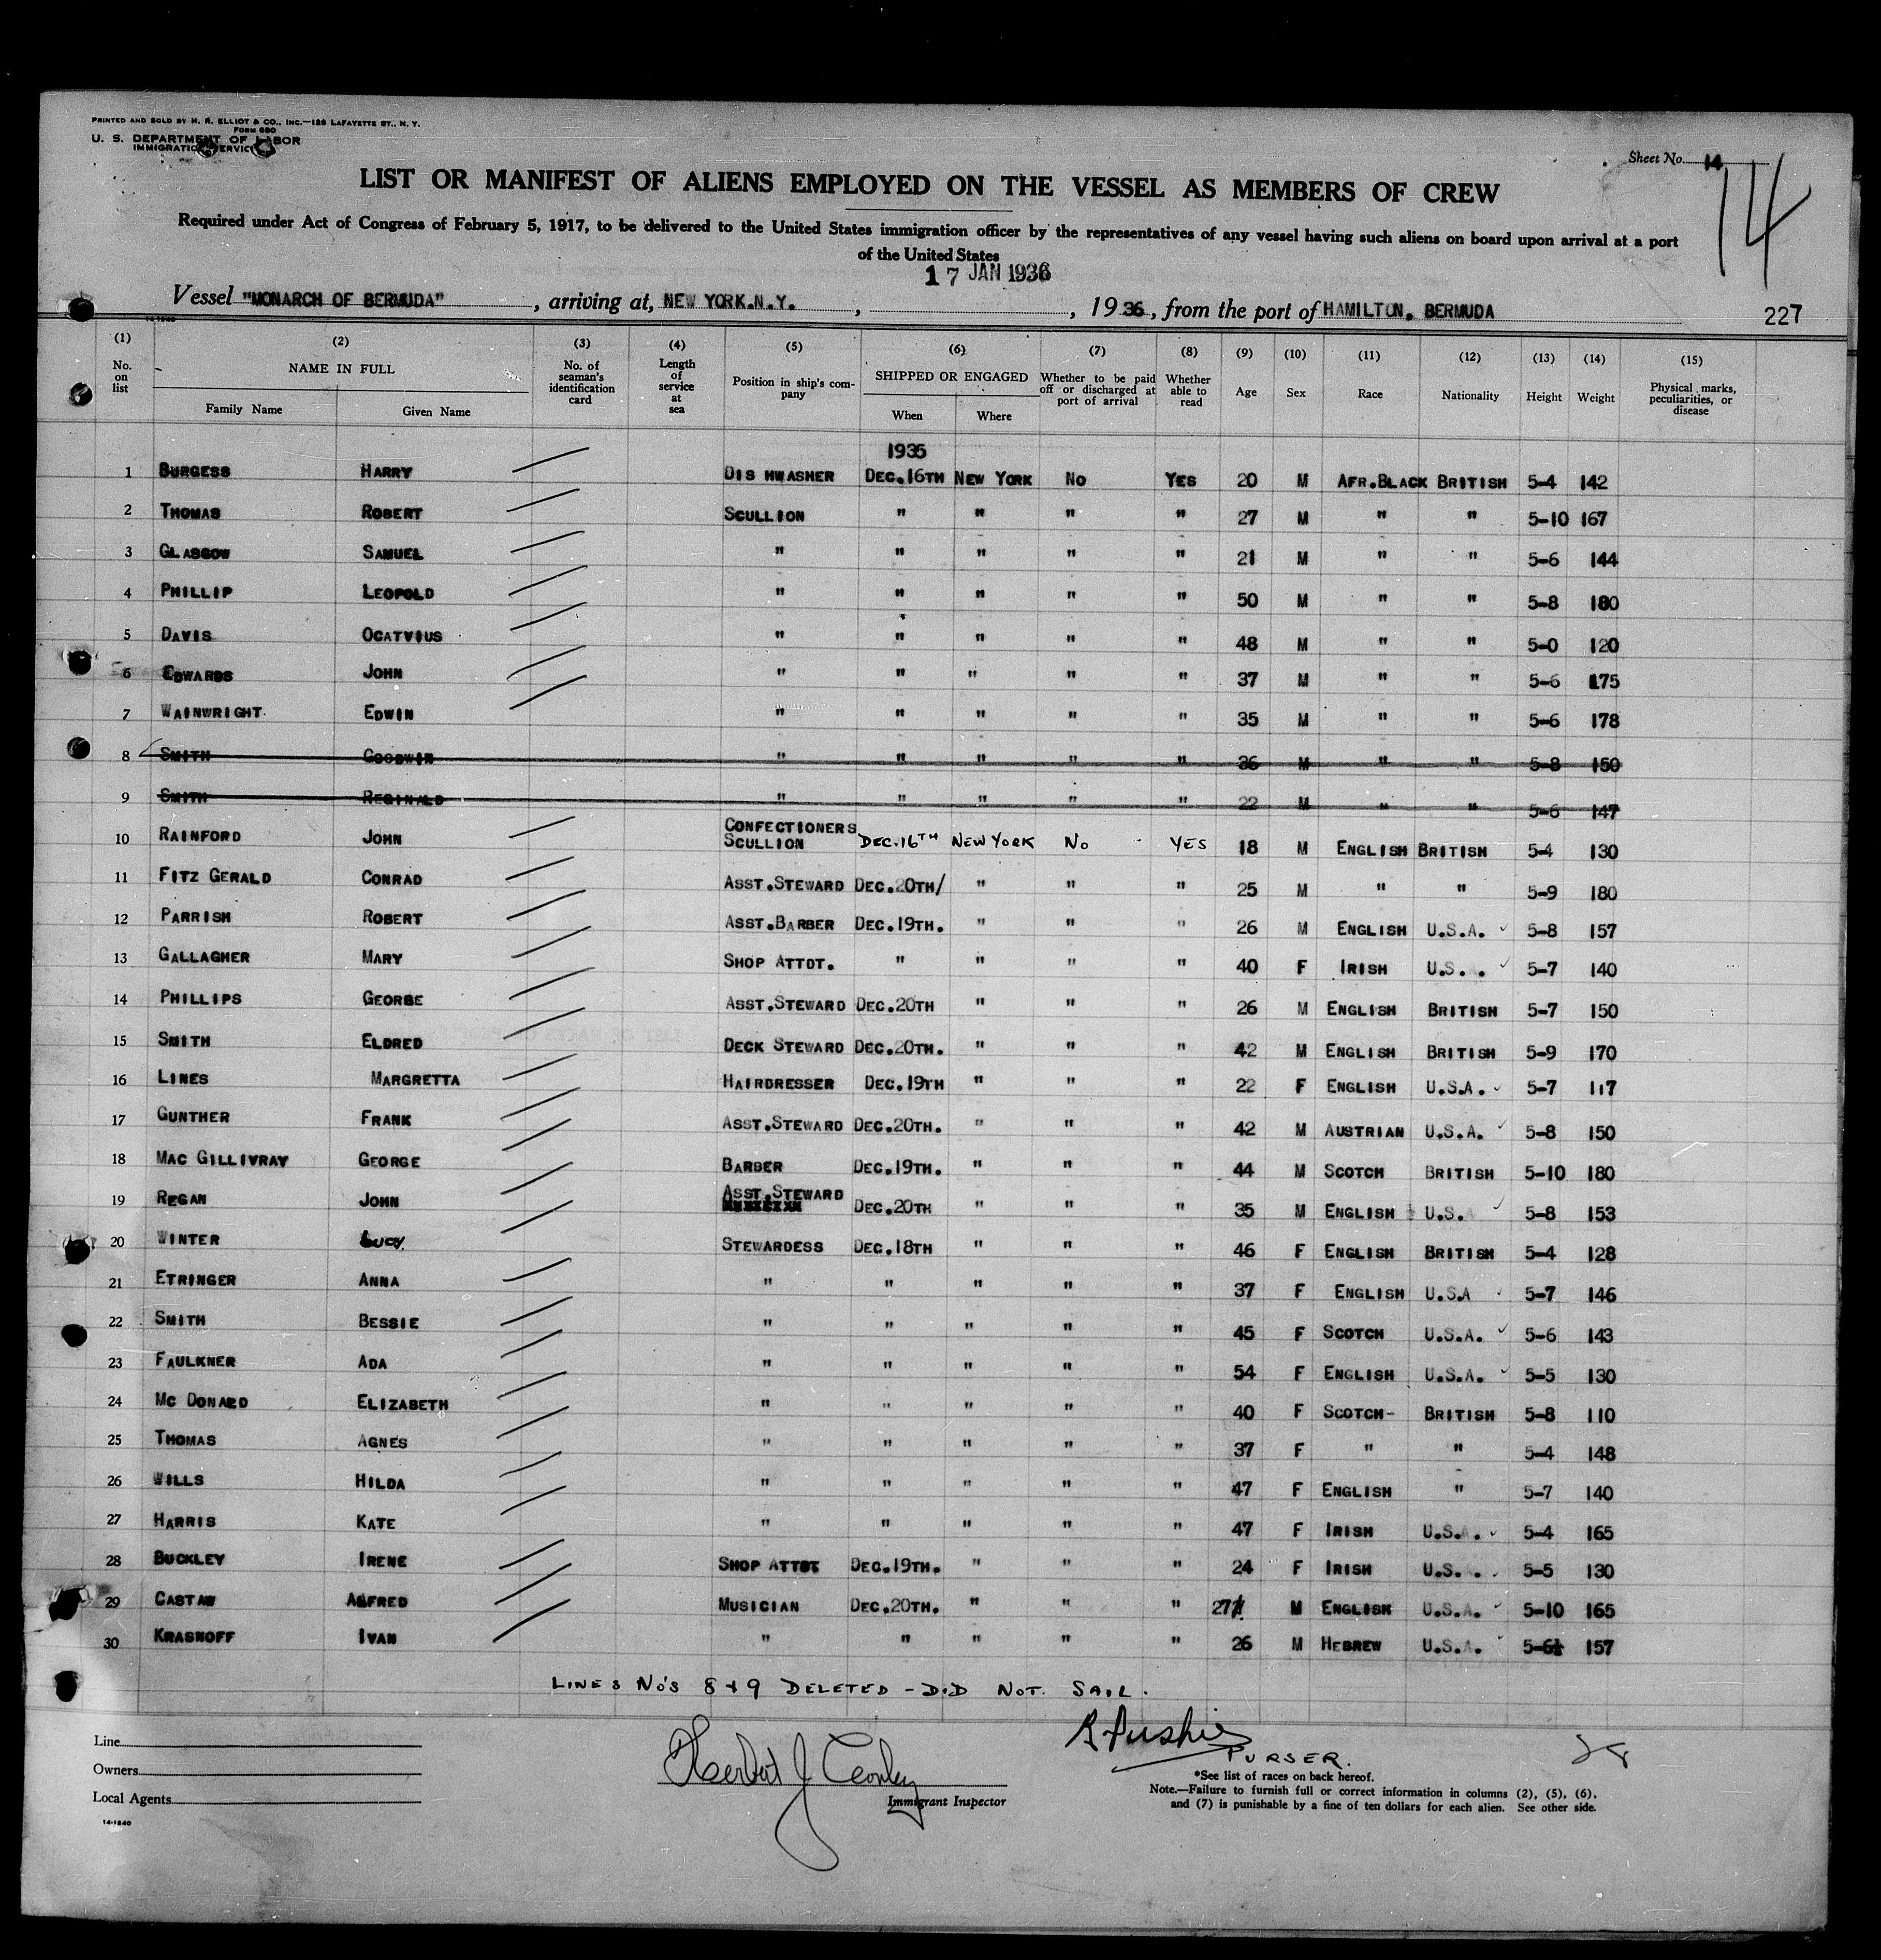 PRINTED AND SOLD BY H. R. ELLIOT & CO., INC.—129 LAFAYETTE ST., N. Y.
FORM 680
U. S. DEPARTMENT OF LABOR
IMMIGRATION SERVICE
Sheet No. 14
14
LIST OR MANIFEST OF ALIENS EMPLOYED ON THE VESSEL AS MEMBERS OF CREW
Required under Act of Congress of February 5, 1917, to be delivered to the United States immigration officer by the representatives of any vessel having such aliens on board upon arrival at a port
of the United States
17 JAN 1936
Vessel "MONARCH OF BERMUDA", arriving at, NEW YORK.N.Y., , 1936, from the port of HAMILTON. BERMUDA
227
(1) (2) (3) (4) (5) (6) (7) (8) (9) (10) (11) (12) (13) (14) (15)
No. on list NAME IN FULL Family Name Given Name No. of seaman's identification card Length of service at sea Position in ship's company SHIPPED OR ENGAGED When Where Whether to be paid off or discharged at port of arrival Whether able to read Age Sex Race Nationality Height Weight Physical marks, peculiarities, or disease
1935
1 BURGESS HARRY DISHWASHER DEC.16TH NEW YORK NO YES 20 M AFR.BLACK BRITISH 5-4 142
2 THOMAS ROBERT SCULLION " " " " 27 M " " 5-10 167
3 GLASGOW SAMUEL " " " " " 21 M " " 5-6 144
4 PHILLIP LEOPOLD " " " " " 50 M " " 5-8 180
5 DAVIS OCATVIUS " " " " " 48 M " " 5-0 120
6 EDWARDS JOHN " " " " " 37 M " " 5-6 175
7 WAINWRIGHT. EDWIN " " " " " 35 M " " 5-6 178
8 SMITH GOODWIN " " " " " 36 M " " 5-8 150
9 SMITH REGINALD " " " " " 22 M " " 5-6 147
10 RAINFORD JOHN CONFECTIONERS SCULLION DEC.16TH NEW YORK NO YES 18 M ENGLISH BRITISH 5-4 130
11 FITZ GERALD CONRAD ASST.STEWARD DEC.20TH/ " " " 25 M " " 5-9 180
12 PARRISH ROBERT ASST.BARBER DEC.19TH. " " " 26 M ENGLISH U.S.A. 5-8 157
13 GALLAGHER MARY SHOP ATTDT. " " " " 40 F IRISH U.S. . 5-7 140
14 PHILLIPS GEORGE ASST.STEWARD DEC.20TH " " " 26 M ENGLISH BRITISH 5-7 150
15 SMITH ELDRED DECK STEWARD DEC.20TH. " " " 42 M ENGLISH BRITISH 5-9 170
16 LINES MARGRETTA HAIRDRESSER DEC.19TH " " " 22 F ENGLISH U.S.A. 5-7 117
17 GUNTHER FRANK ASST.STEWARD DEC.20TH. " " " 42 M AUSTRIAN U.S.A. 5-8 150
18 MAC GILLIVRAY GEORGE BARBER DEC.19TH. " " " 44 M SCOTCH BRITISH 5-10 180
19 REGAN JOHN ASST.STEWARD DEC.20TH " " " 35 M ENGLISH U.S. 5-8 153
20 WINTER LUCY. STEWARDESS DEC.18TH " " " 46 F ENGLISH BRITISH 5-4 128
21 ETRINGER ANNA " " " " " 37 F ENGLISH U.S.A 5-7 146
22 SMITH BESSIE " " " " " 45 F SCOTCH U.S.A. 5-6 143
23 FAULKNER ADA " " " " " 54 F ENGLISH U.S.A. 5-5 130
24 MC DONALD ELIZABETH " " " " " 40 F SCOTCH- BRITISH 5-8 110
25 THOMAS AGNES " " " " " 37 F " " 5-4 148
26 WILLS HILDA " " " " " 47 F ENGLISH " 5-7 140
27 HARRIS KATE " " " " " 47 F IRISH U.S.A. 5-4 165
28 BUCKLEY IRENE SHOP ATTDT DEC.19TH. " " " 24 F IRISH U.S. . 5-5 130
29 CASTAW ALFRED MUSICIAN DEC.20TH. " " " 27 M ENGLISH U.S.A. 5-10 165
30 KRASNOFF IVAN " " " " " 26 M HEBREW U.S.A. 5-6½ 157
LINES NO'S 8+9 DELETED - DID NOT. SAIL.
Line
Owners
Local Agents
14-1240
Herbert J
Immigrant Inspector
PURSER.
28
*See list of races on back hereof.
Note.—Failure to furnish full or correct information in columns (2), (5), (6),
and (7) is punishable by a fine of ten dollars for each alien. See other side.